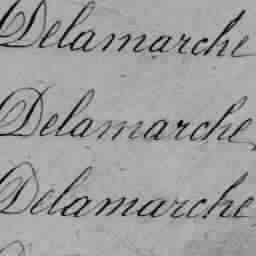 Delamarche
Delamarche
Delamarche